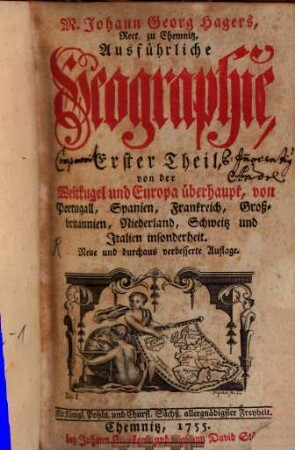 M. Johann Georg Hagers,
Rect. zu Chemnitz,
Ausführliche
Geographie,
Erster Theil,
von der
Weltkugel und Europa überhaupt, von
Portugall, Spanien, Frankreich, Groß-
britannien, Niederland, Schweitz und
Italien insonderheit.
Neue und durchaus verbesserte Auflage.
Königl. Pohln. und Churfl. Sächß. allergnädigster Freyheit.
Chemnitz, 1755.
bey Johann und David